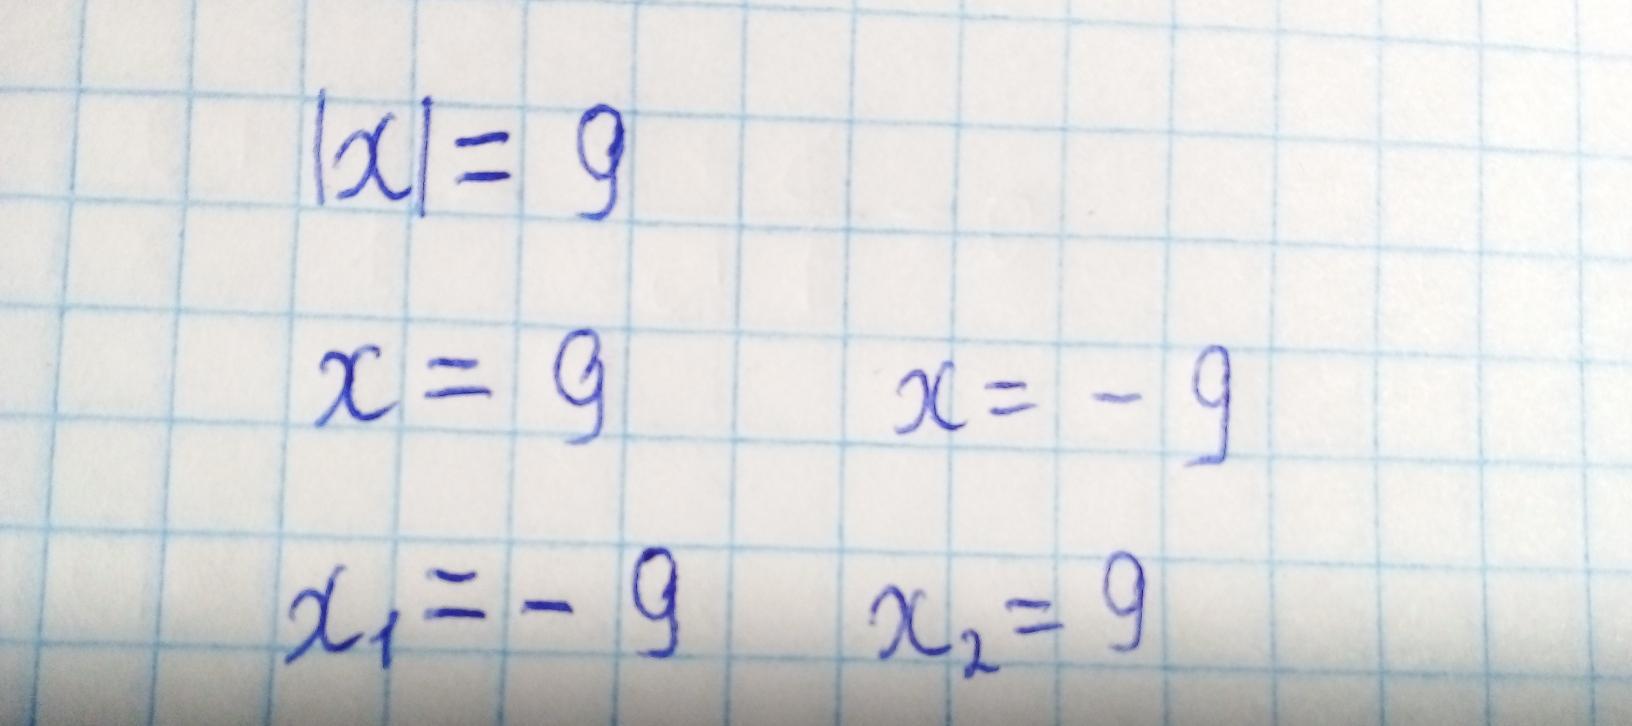 |x| = 9
x = 9 x = - 9
x₁ = - 9 x₂ = 9